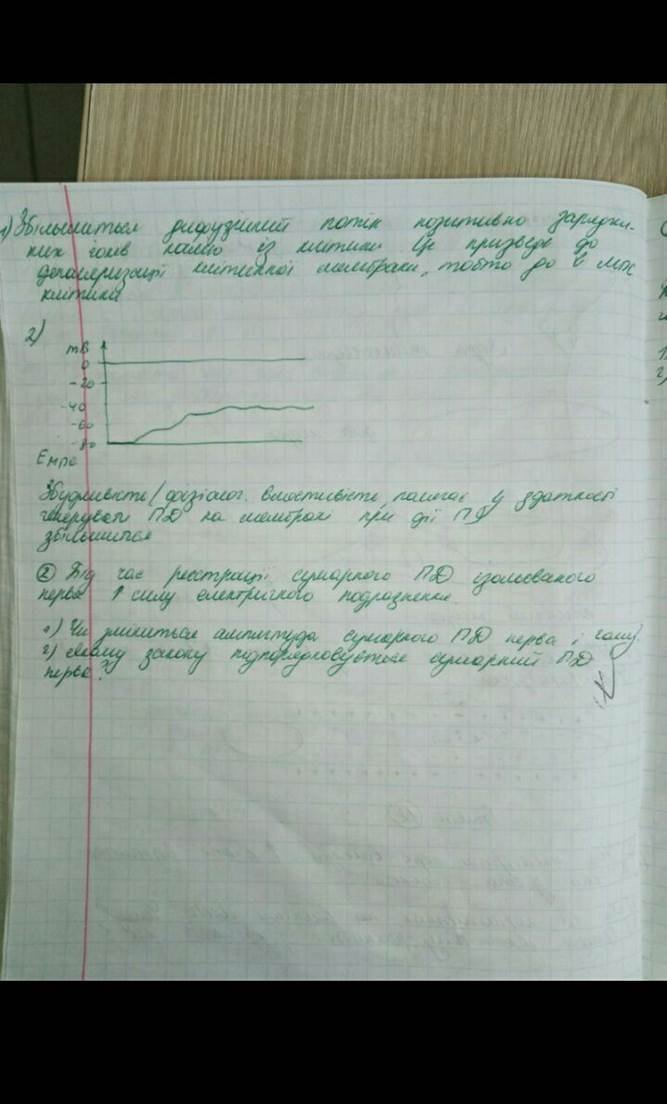 1) Збільшиться дифузійний потік позитивно зарядже-
них іонів калію із клітини. Це призведе до
деполяризації клітинної мембрани, тобто до
клітина
2)
mB
0
-20
-40
-60
-80
Емпс
Збудливість/фізіолог. властивість, полягає у здатності
генерувати ПД на мембрані при дії
збільшиться
② Під час реєстрації сумарного ПД ізольованого
нерва ↑ силу електричного подразнення
1) Чи зміниться амплітуда сумарного ПД нерва і чому?
2) Якому закону підпорядковується сумарний ПД
нерва?